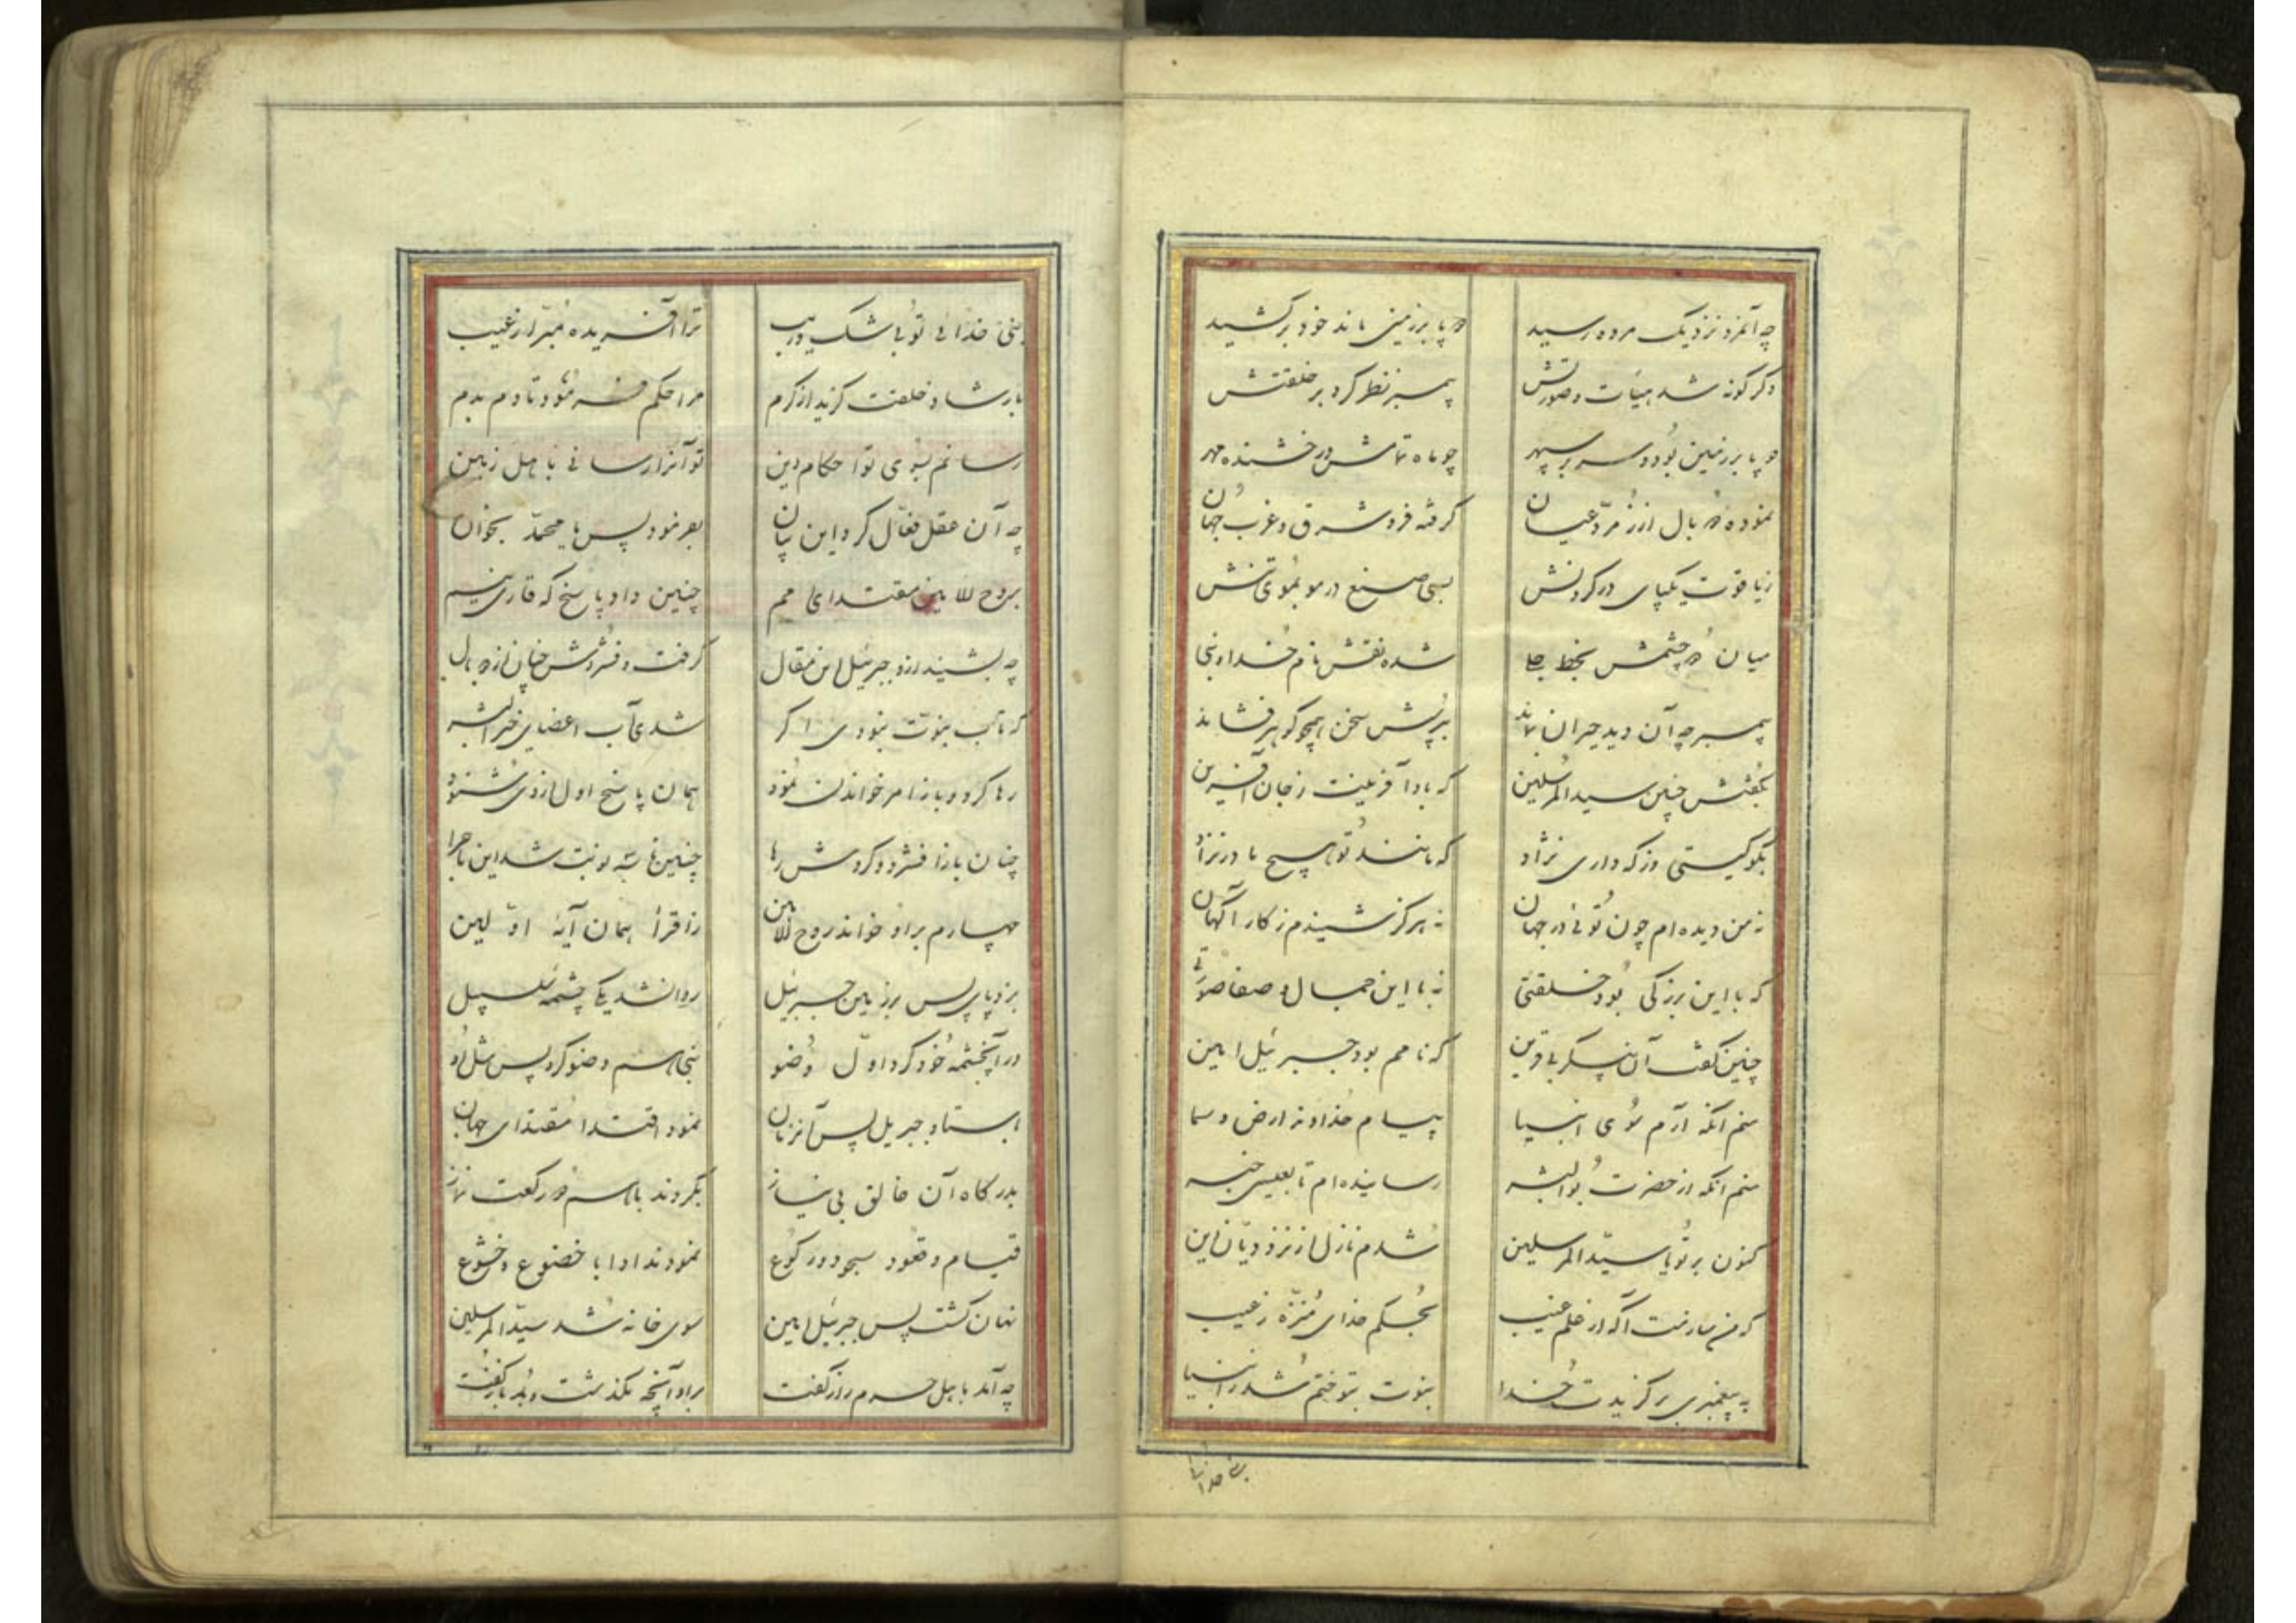 چه آنمرد نزدیک مروه رسید دو پا بر زمین ماند خود برکشید
دکرکونه شد هیئات و صورتش پیمبر نظر کرد بر خلقتش
دو پا بر زمین بود و سر بر سپهر چو ماه تمامش درخشنده مهر
نموده دو بال از زمرد عیان کرفته فرو شرق و غرب جهان
زیاقوت یکپای در کردنش بسی صنع در مو بموی تنش
میان دو چشمش بخط جلی شده نقش نام خدا و نبی
پیمبر چه آن دید حیران بماند بپرسش سخن همچو کوهر فشاند
بکفتش چنین سید المرسلین که بادا آفرینت ز جان آفرین
بکو کیستی وز که داری نژاد که مانند تو هیچ مادر نزاد
نه من دیده ام چون توئی در جهان نه هرکز شنیدم ز کارآکهان
که با این بزرکی بود خلقتی نه با این جمال و صفا صورتی
چنین کفت آن پیکر بی قرین که نامم بود جبرئیل امین
منم آنکه آرم سوی انبیا پیام خداوند ارض و سما
منم آنکه از حضرت بوالبشر رسانیده ام تا بعیسی خبر
کنون بر تو یا سید المرسلین شدم نازل از نزد دیان دین
که من سازمت آکه از علم غیب بحکم خدای منزه ز عیب
به پیغمبری برکزیدت خدا نبوت بتو ختم شد ز انبیا
نبی خدائی
نبی خدائی توئی بی شک و ریب ترا آفریده مبرا ز عیب
بارشاد خلقت کزید از کرم مرا حکم فرمود تا دم بدم
رسانم بسوی تو احکام دین تو آنرا رسانی باهل زمین
چه آن عقل فعال کرد این بیان بفرمود پس یا محمد بخوان
بروح الامین مقتدای امم چنین داد پاسخ که قاری نیم
چه بشنید ازو جبرئیل این مقال کرفت و فشردش چنان از دو بال
که تاب نبوت نبودی اکر شدی آب اعضای خیر البشر
رها کرد و باز امر خواندن نمود همان پاسخ اول از وی شنود
چنان باز افشرد و کردش رها چنین تا سه نوبت شد این ماجرا
چهارم براو خواند روح الامین ز اقرأ همان آیهٔ اولین
بزد پای پس بر زمین جبرئیل روانشد یکی چشمه سلسبیل
در آنچشمه خود کرد اول وضو نبی هم وضو کرد پس مثل او
بایستاد جبریل پس آنزمان نمود اقتدا مقتدای جهان
بدرکاه آن خالق بی نیاز بکردند باهم دو رکعت نماز
قیام و قعود سجود و رکوع نمودند ادا با خضوع و خشوع
نهان کشت پس جبرئیل امین سوی خانه شد سید المرسلین
چه آمد باهل حرم راز کفت براو آنچه بکذشت بد باز کفت